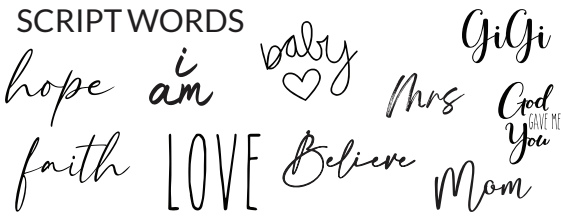 SCRIPT WORDS
hope
i
am
baby
Mrs
GiGi
God
GAVE ME
You
faith
LOVE
Believe
Mom